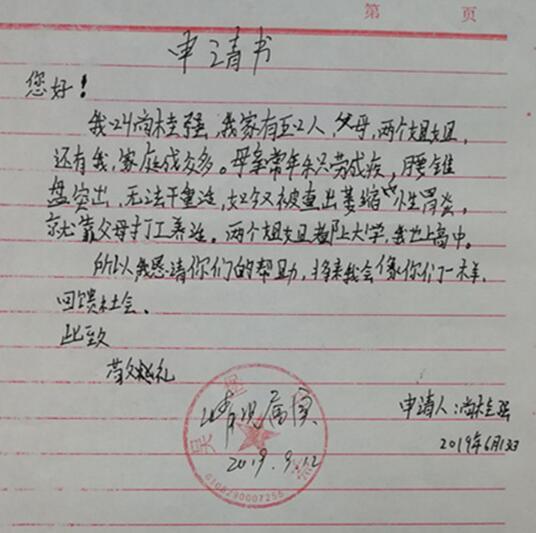 第 页
申请书
您好！
我叫尚桂强，我家有五口人，父母，两个姐姐，
还有我，家庭成员多。母亲常年积劳成疾，腰锥
盘突出，无法干重活，如今又被查出萎缩性胃炎，
就靠父母打工养活。两个姐姐都上大学，我也上高中。
所以我恳请你们的帮助，将来我会像你们一样，
回馈社会。
此致
敬礼
情况属实
申请人：尚桂强
2019.9.12
2019年6月13日